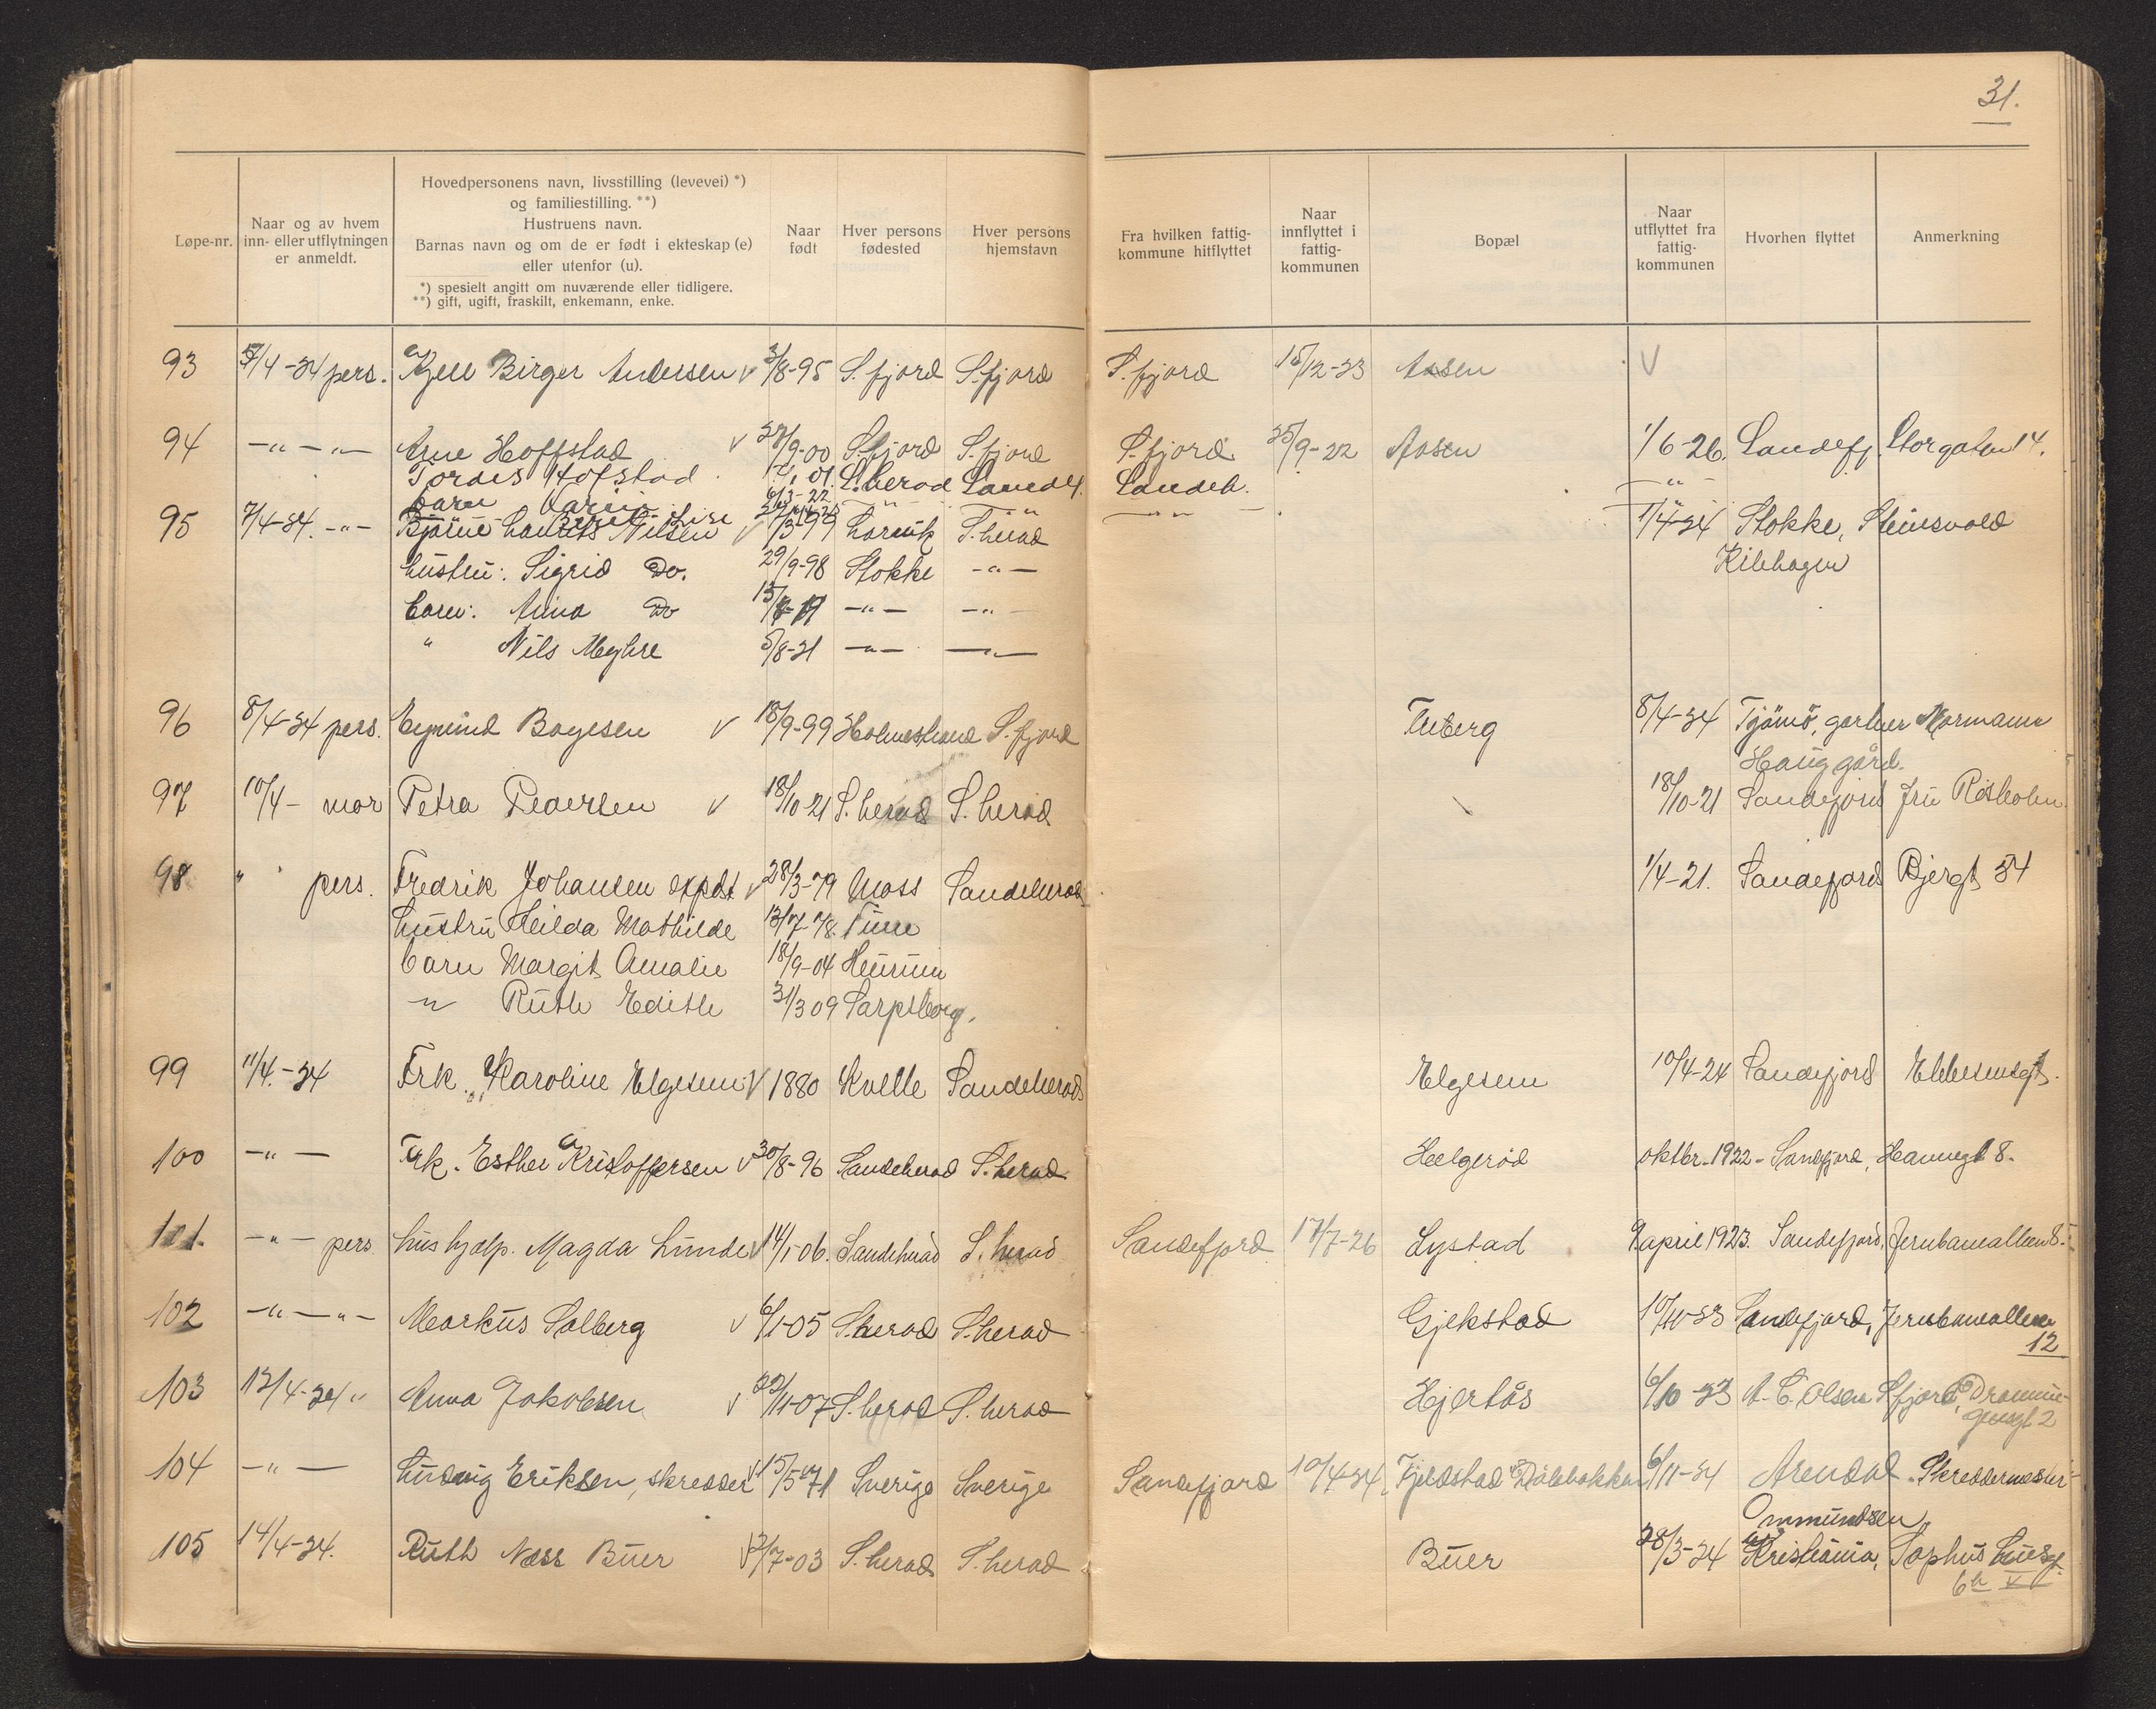 31.
Løpe-nr.
Naar og av hvem
inn- eller utflytningen
er anmeldt.
Hovedpersonens navn, livsstilling (levevei) *)
og familiestilling. **)
Hustruens navn.
Barnas navn og om de er født i ekteskap (e)
eller utenfor (u).
*) spesielt angitt om nuværende eller tidligere.
**) gift, ugift, fraskilt, enkemann, enke.
Naar
født
Hver persons
fødested
Hver persons
hjemstavn
Fra hvilken fattig-
kommune hitflyttet
Naar
innflyttet i
fattig-
kommunen
Bopæl
Naar
utflyttet fra
fattig-
kommunen
Hvorhen flyttet
Anmerkning
93 /4-24 pers. Kjell Birger Andersen v 3/8-95 S. fjord S. fjord S. fjord 15/12-23 Aasen v
94 -"-"- Arne Hoffstad v 28/9-00 S. fjord S. fjord S. fjord 25/9-22 Aasen 1/6-26. Sandefj. Storgaten 14.
Tordis Hofstad 01. S. herad Sandeh. Sandeh. -"-
barn 6/3-22 -"- -"-
95 7/4-24. -"- Bjarne Laurits Nilsen v /3-99 Larvik S. herad 1/4-24 Stokke, Steinsvold
hustru: Sigrid Do. 29/9-98 Stokke -"- Kilehagen
barn: Anna Do 15/ -"- -"-
" Nils Myhre 5/8-21 -"- -"-
96 8/4-24 pers. Eyvind Boyesen v 18/9-99 Holmestrand S. fjord Fuberg 8/4-24 Tjömö, gartner Normann
Haug gård.
97 10/4- mor Petra Pedersen v 18/10-21 S. herad S. herad 18/10-21 Sandefjord fru Risholm
98 " pers. Fredrik Johansen expdt v 28/3-79 Moss Sandeherad 1/4-21. Sandefjord Bjergt 34
hustru Hilda Mathilde 13/7-78. Tune
barn Margit Amalie 18/9-04 Hurum
-"- Ruth Edith 31/3 09 Sarpsborg.
99 11/4.-24 Frk. Karoline Elgesem v 1880 Kvelle Sandeherad Elgesem 10/4-24 Sandefjord Ebbesensgt.
100 -"- Frk. Esther Kristoffersen v 30/8-96 Sandeherad S. herad Helgerød oktbr. 1922- Sandefjord, Havnegt 8.
101. -"- pers. hushjælp. Magda Lunde v 14/1-06. Sandeherad S. herad Sandefjord 17/7-26 Lystad 9 april 1923. Sandefjord, Jernbanealleen 8.
102 -"-"- Markus Solberg v 6/1-05 S. herad S. herad Gjekstad 10/10-23 Sandefjord, Jernbanealleen
12
103 12/4-24 " Anna Jakobsen v 22/11-07 S. herad S. herad Hjertås 6/10-23 A. C. Olsen S fjord, Dronnin-
gensgt 2
104 -"- Ludvig Eriksen, skredder v 15/5-71 Sverige Sverige Sandefjord 10/4-24. Fjeldstad v/ Dölebakken 6/11-24 Arendal. Skreddermester
Ommundsen
105 14/4-24. Ruth Næss Buer v 2/7-03 S. herad S. herad Buer 28/3-24 Kristiania, Sophus Liesgt.
6 v